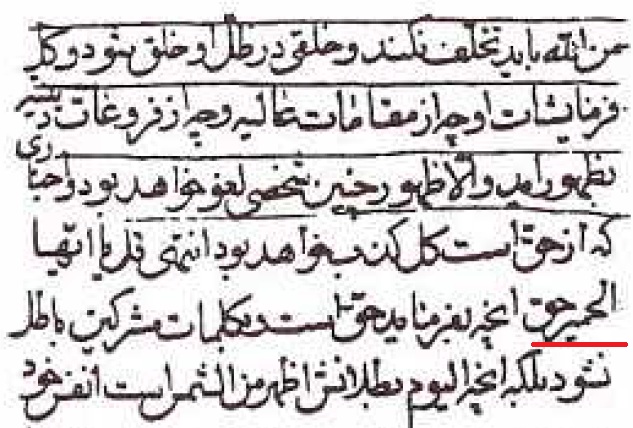 من الله باید تخلف نکنند و خلقی در ظل او خلق بشود و کل
فرمایشات او چه از مقامات عالیه و چه از فروعات
بظهور آید و الّا ظهور چنین شخصی لغو خواهد بود و اخباری
که از حق است کل کذب خواهد بود انتهی قل یا ایها
الحمیر حق آنچه بفرماید حق است و بکلمات مشرکین باطل
نشود بلکه آنچه الیوم بطلانش اظهر من الشمس است انفس خود